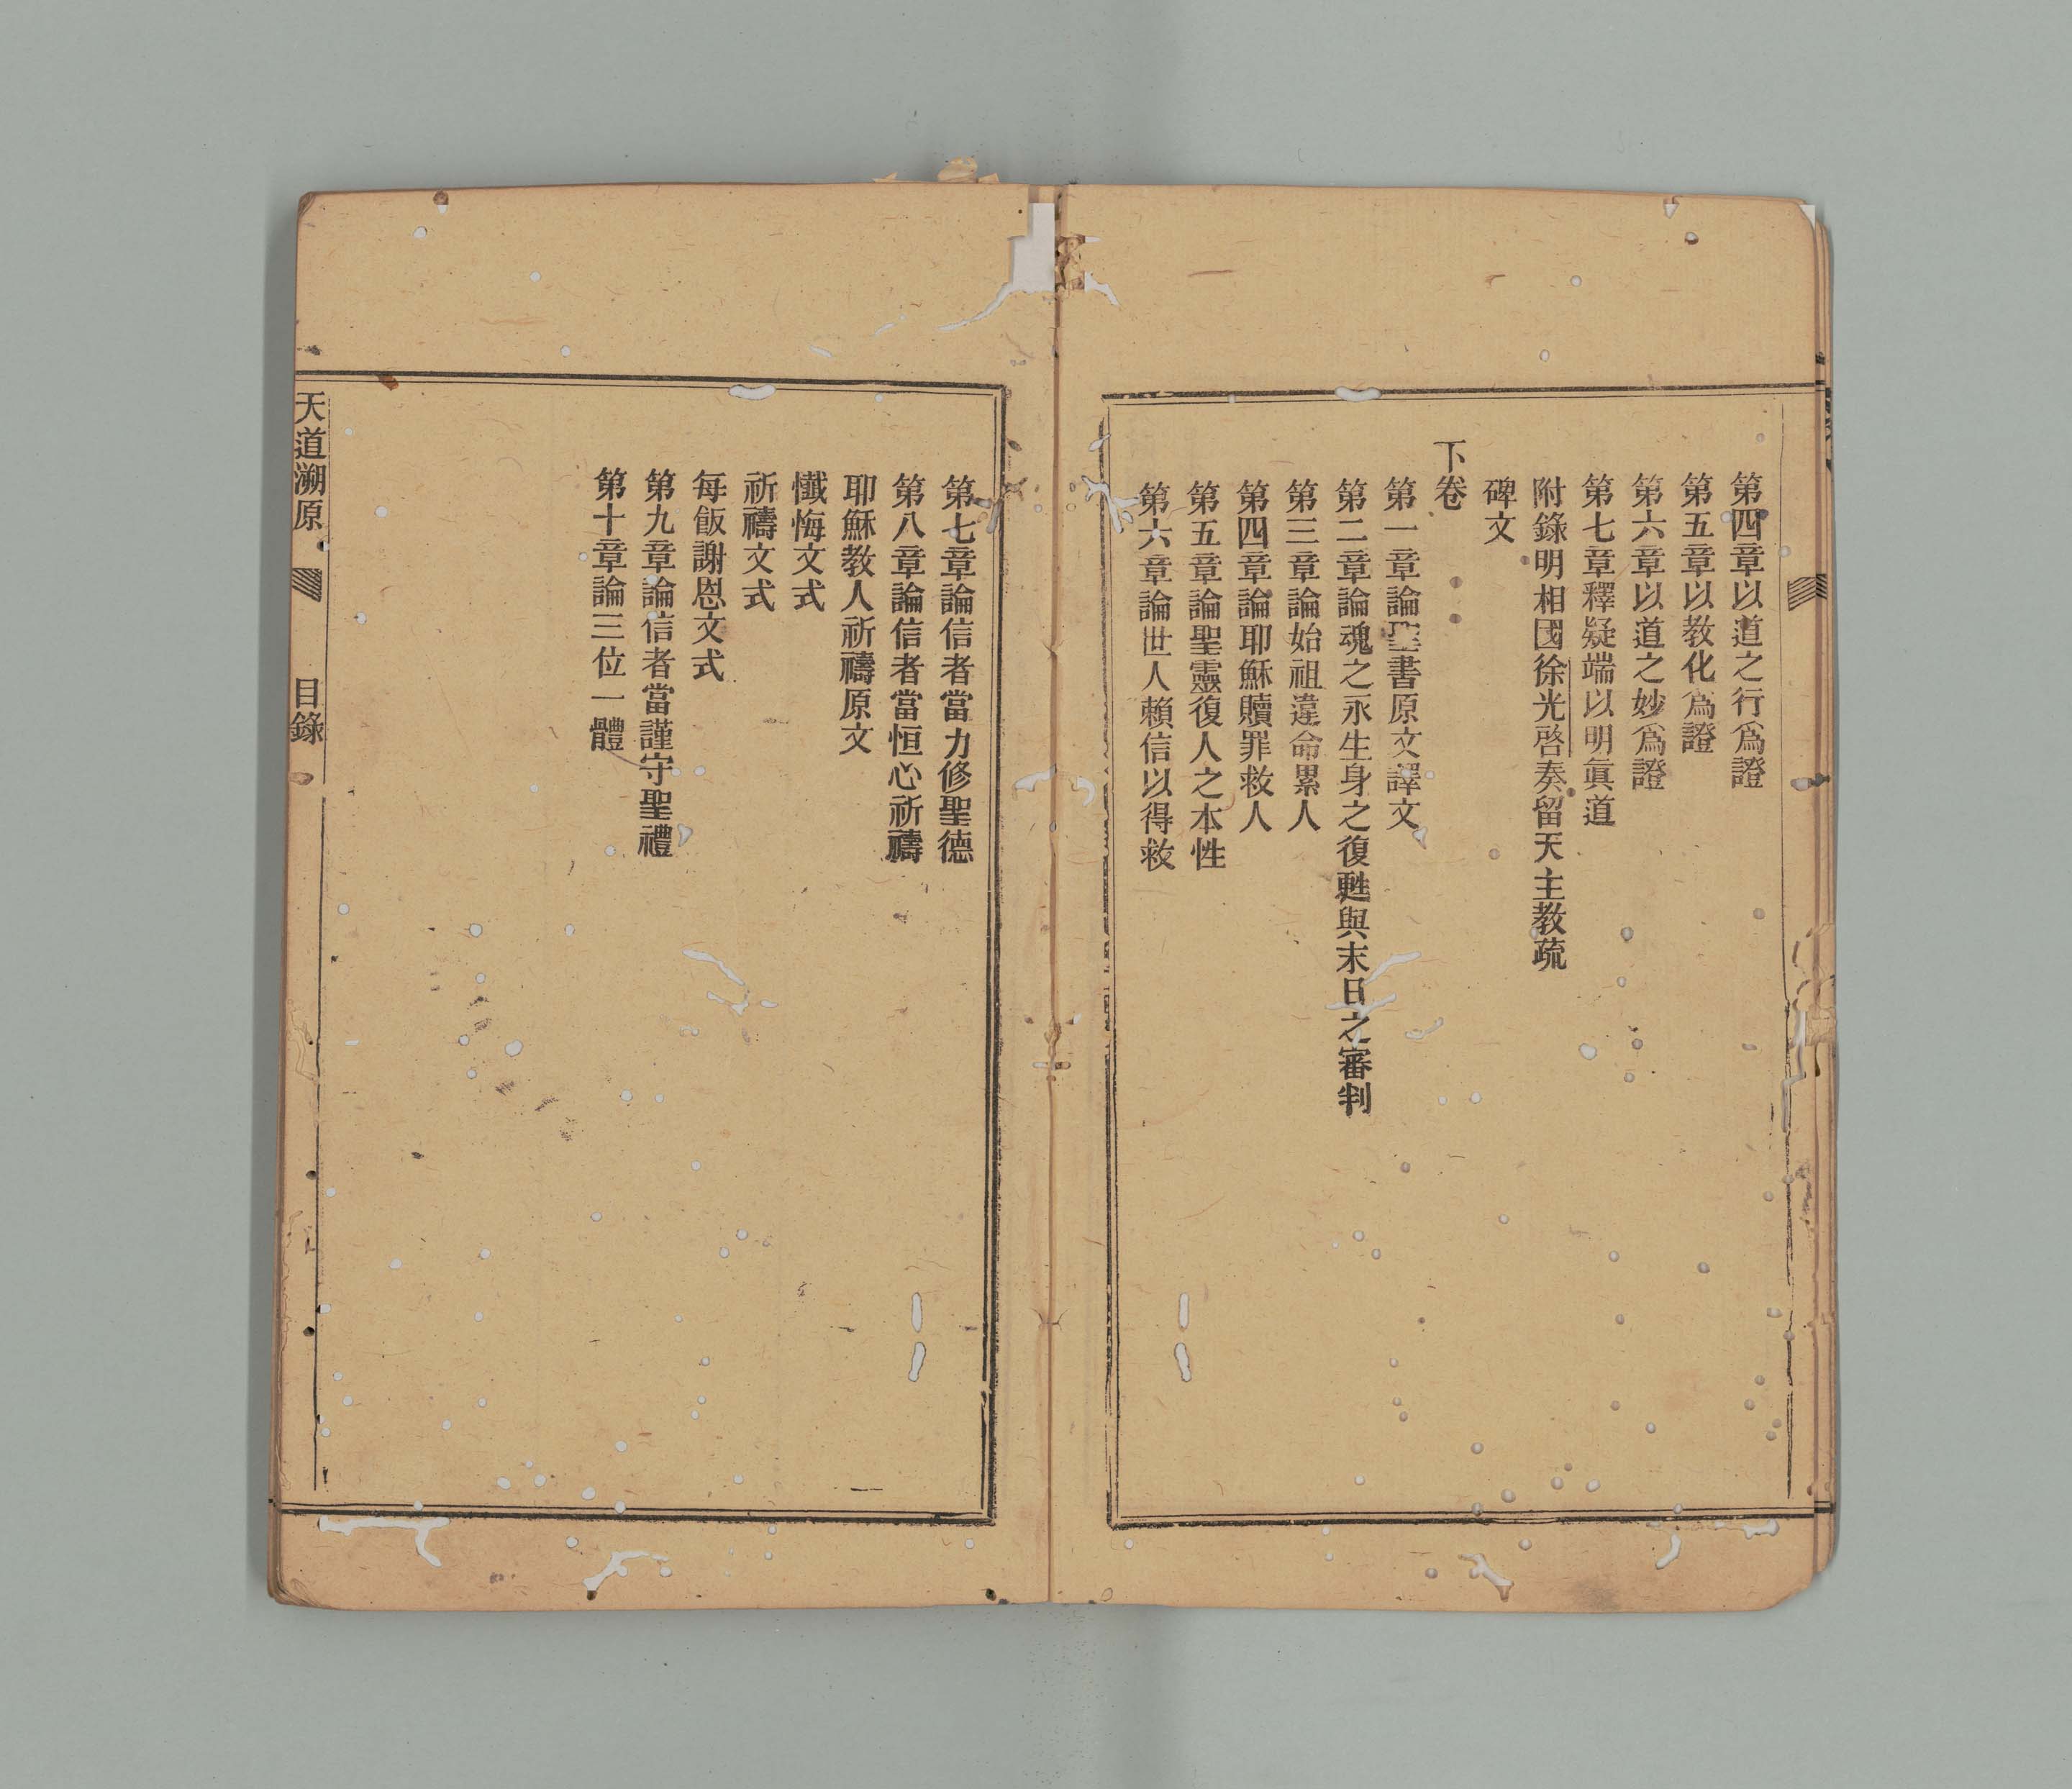 第四章以道之行爲證
第五章以教化爲證
第六章以道之妙爲證
第七章釋疑端以明眞道
附錄明相國徐光啓奏留天主教疏
碑文
下卷
第一章論聖書原文譯文
第二章論魂之永生身之復甦與末日之審判
第三章論始祖違命累人
第四章論耶穌贖罪救人
第五章論聖靈復人之本性
第六章論世人賴信以得救
第七章論信者當力修聖德
第八章論信者當恒心祈禱
耶穌教人祈禱原文
懺悔文式
祈禱文式
每飯謝恩文式
第九章論信者當謹守聖禮
第十章論三位一體
天道溯原
目錄